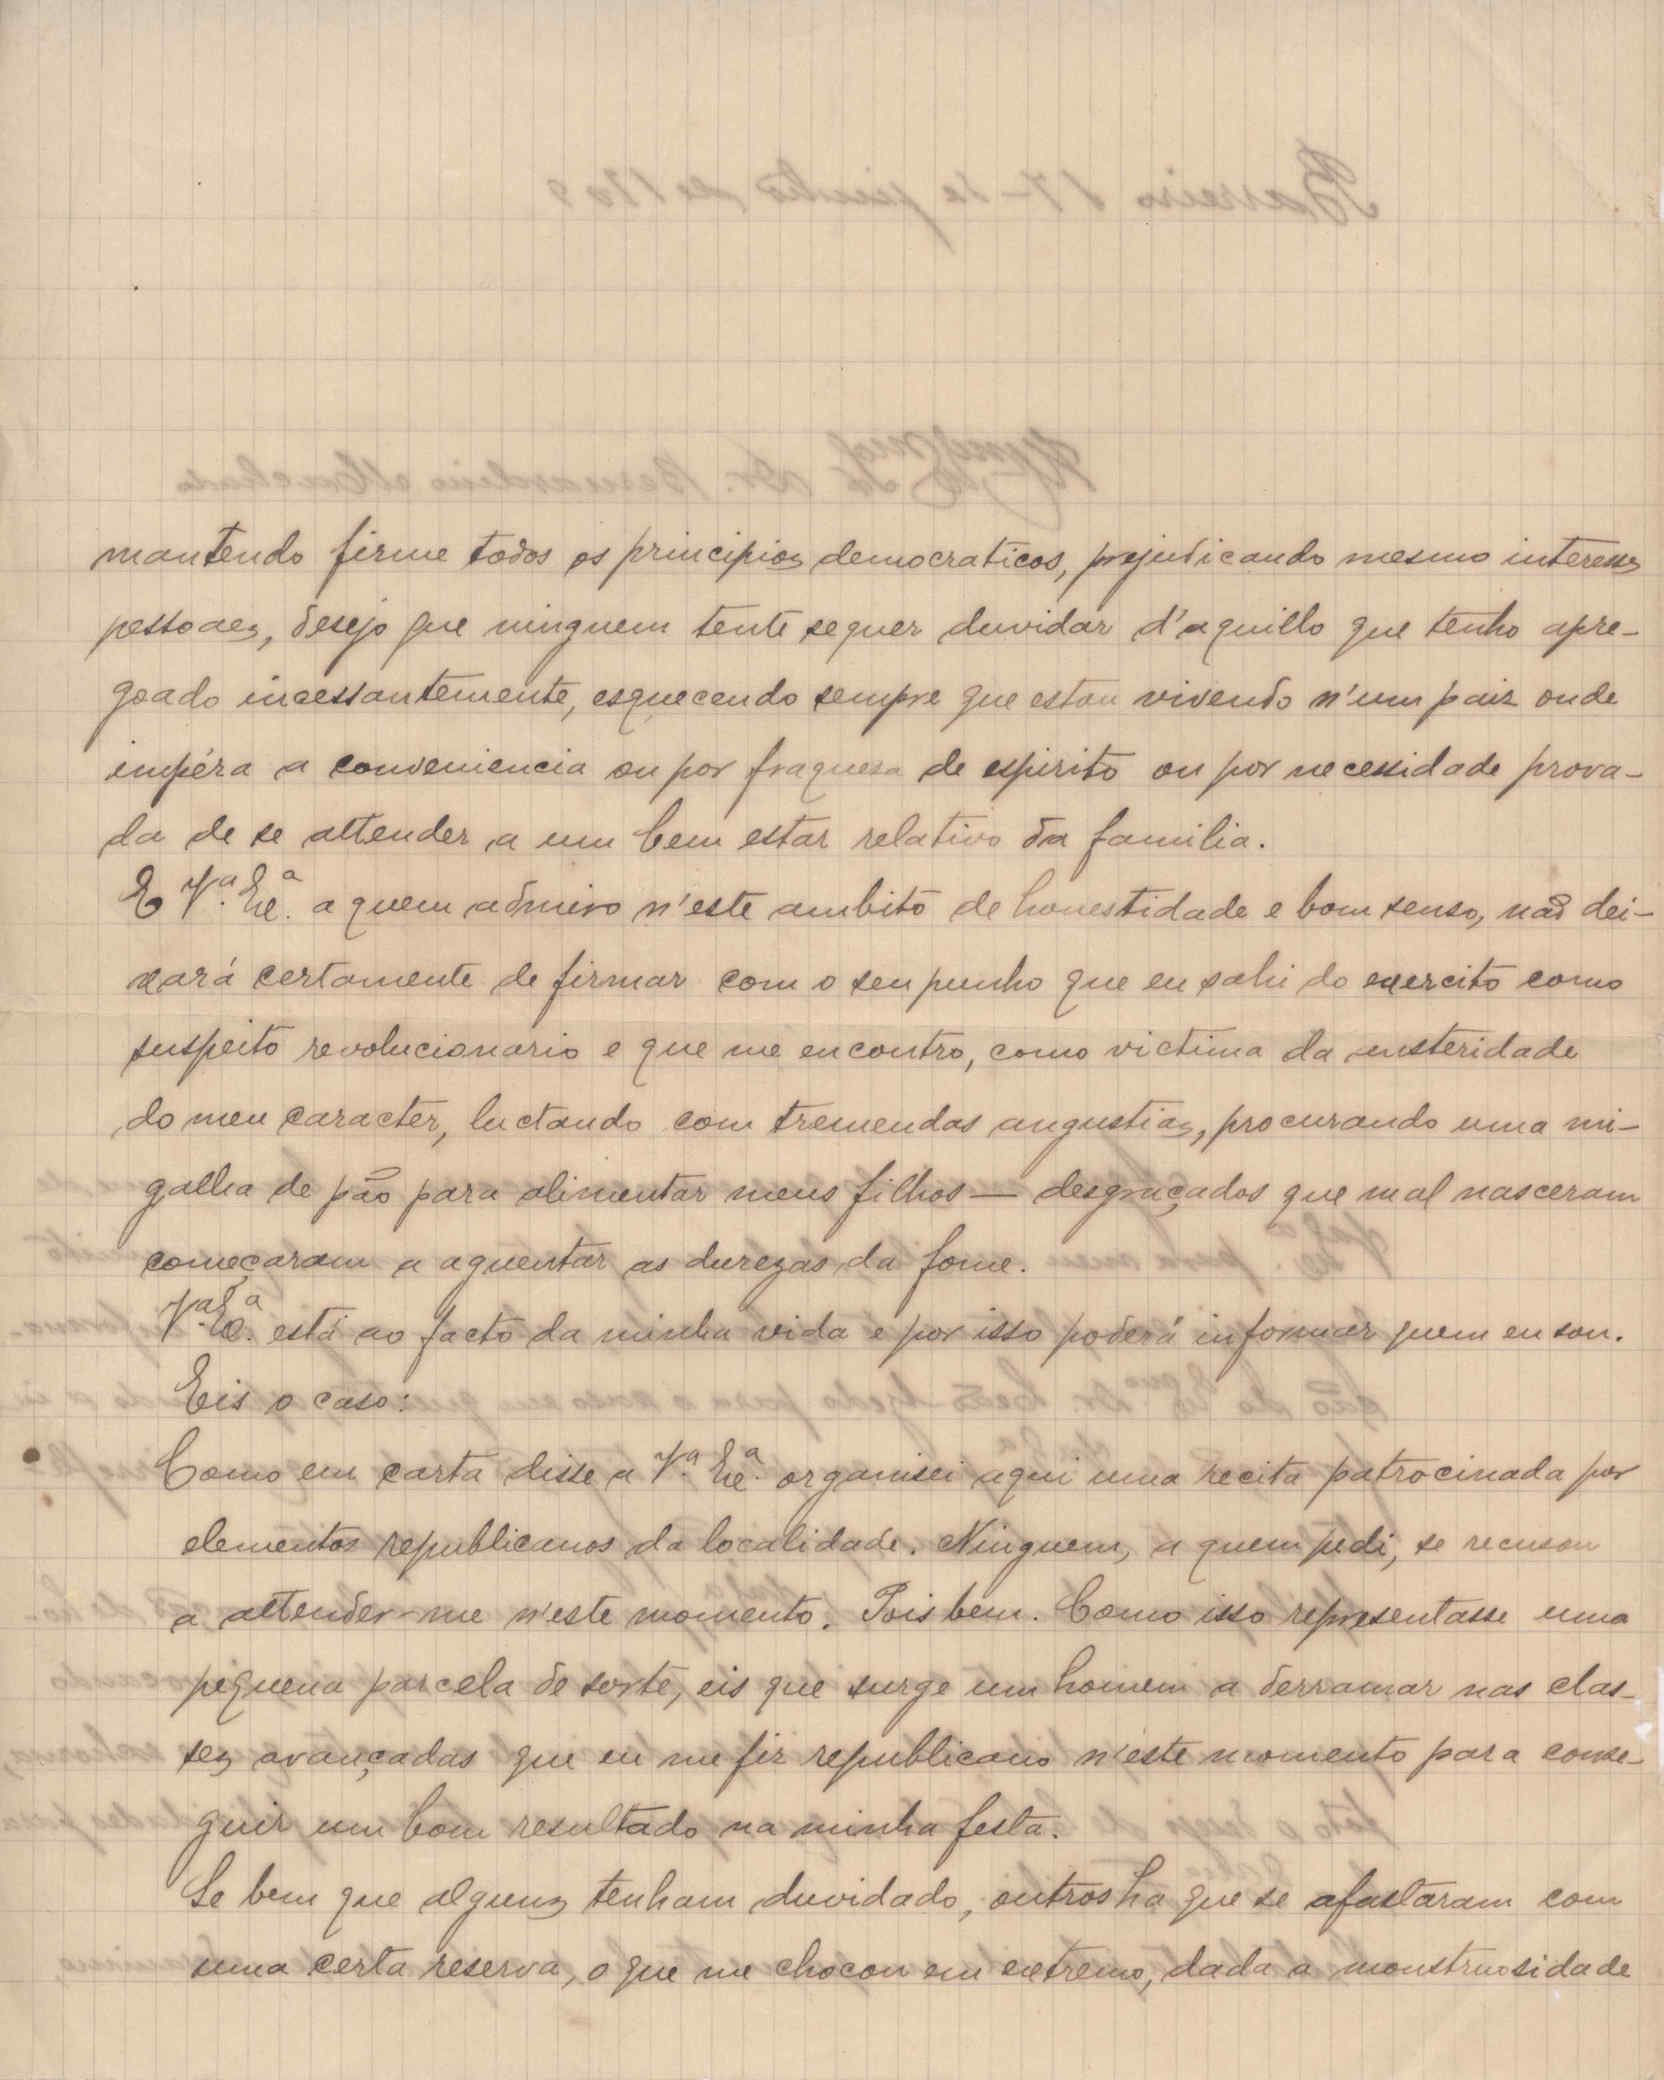 mantendo firme todos os principios democraticos, prejudicando mesmo interesses
pessoaes, desejo que ninguem tente sequer duvidar d'aquillo que tenho apre-
goado incessantemente, esquecendo sempre que estou vivendo n'um paiz onde
impéra a conveniencia ou por fraqueza de espirito ou por necessidade prova-
da de se attender a um bem estar relativo da familia.
E V.ª Ex.ª a quem admiro n'este ambito de honestidade e bom senso, não dei-
xará certamente de firmar com o seu punho que eu sahi do exercito como
suspeito revolucionario e que me encontro, como victima da austeridade
do meu caracter, luctando com tremendas angustias, procurando uma mi-
galha de pão para alimentar meus filhos — desgraçados que mal nasceram
começaram a aguentar as durezas da fome.
V.ª Ex.ª está ao facto da minha vida e por isso poderá informar quem eu sou.
Eis o caso:
Como em carta disse a V.ª Ex.ª organisei aqui uma recita patrocinada por
elementos republicanos da localidade. Ninguem, a quem pedi, se recusou
a attender-me n'este momento. Pois bem. Como isso representasse uma
pequena parcela de sorte, eis que surge um homem a derramar nas clas-
ses avançadas que eu me fiz republicano n'este momento para conse-
guir um bom resultado na minha festa.
Se bem que alguns tenham duvidado, outros ha que se afastaram com
uma certa reserva, o que me chocou em extremo, dada a monstruosidade